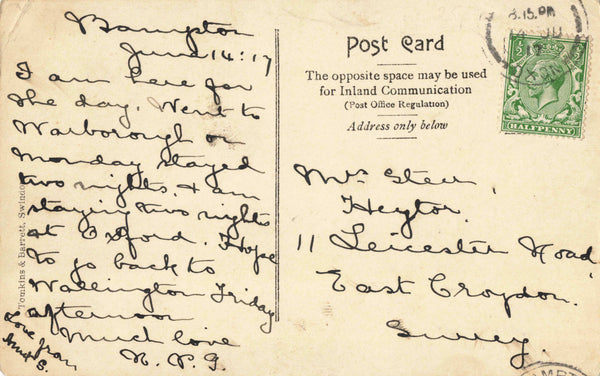 Bampton
June 14: 17
I am here for
the day. Went to
Warborough on
Monday stayed
two nights & am
staying two nights
at Oxford. Hope
to go back to
Wallington Friday
afternoon
Much love
Love from
Aunt S.
Tomkins & Barrett, Swindon
Post Card
The opposite space may be used
for Inland Communication
(Post Office Regulation)
Address only below
8.15 PM
HALFPENNY
Mrs Steer,
Heytor.
11 Leicester Road,
East Croydon.
Surrey.